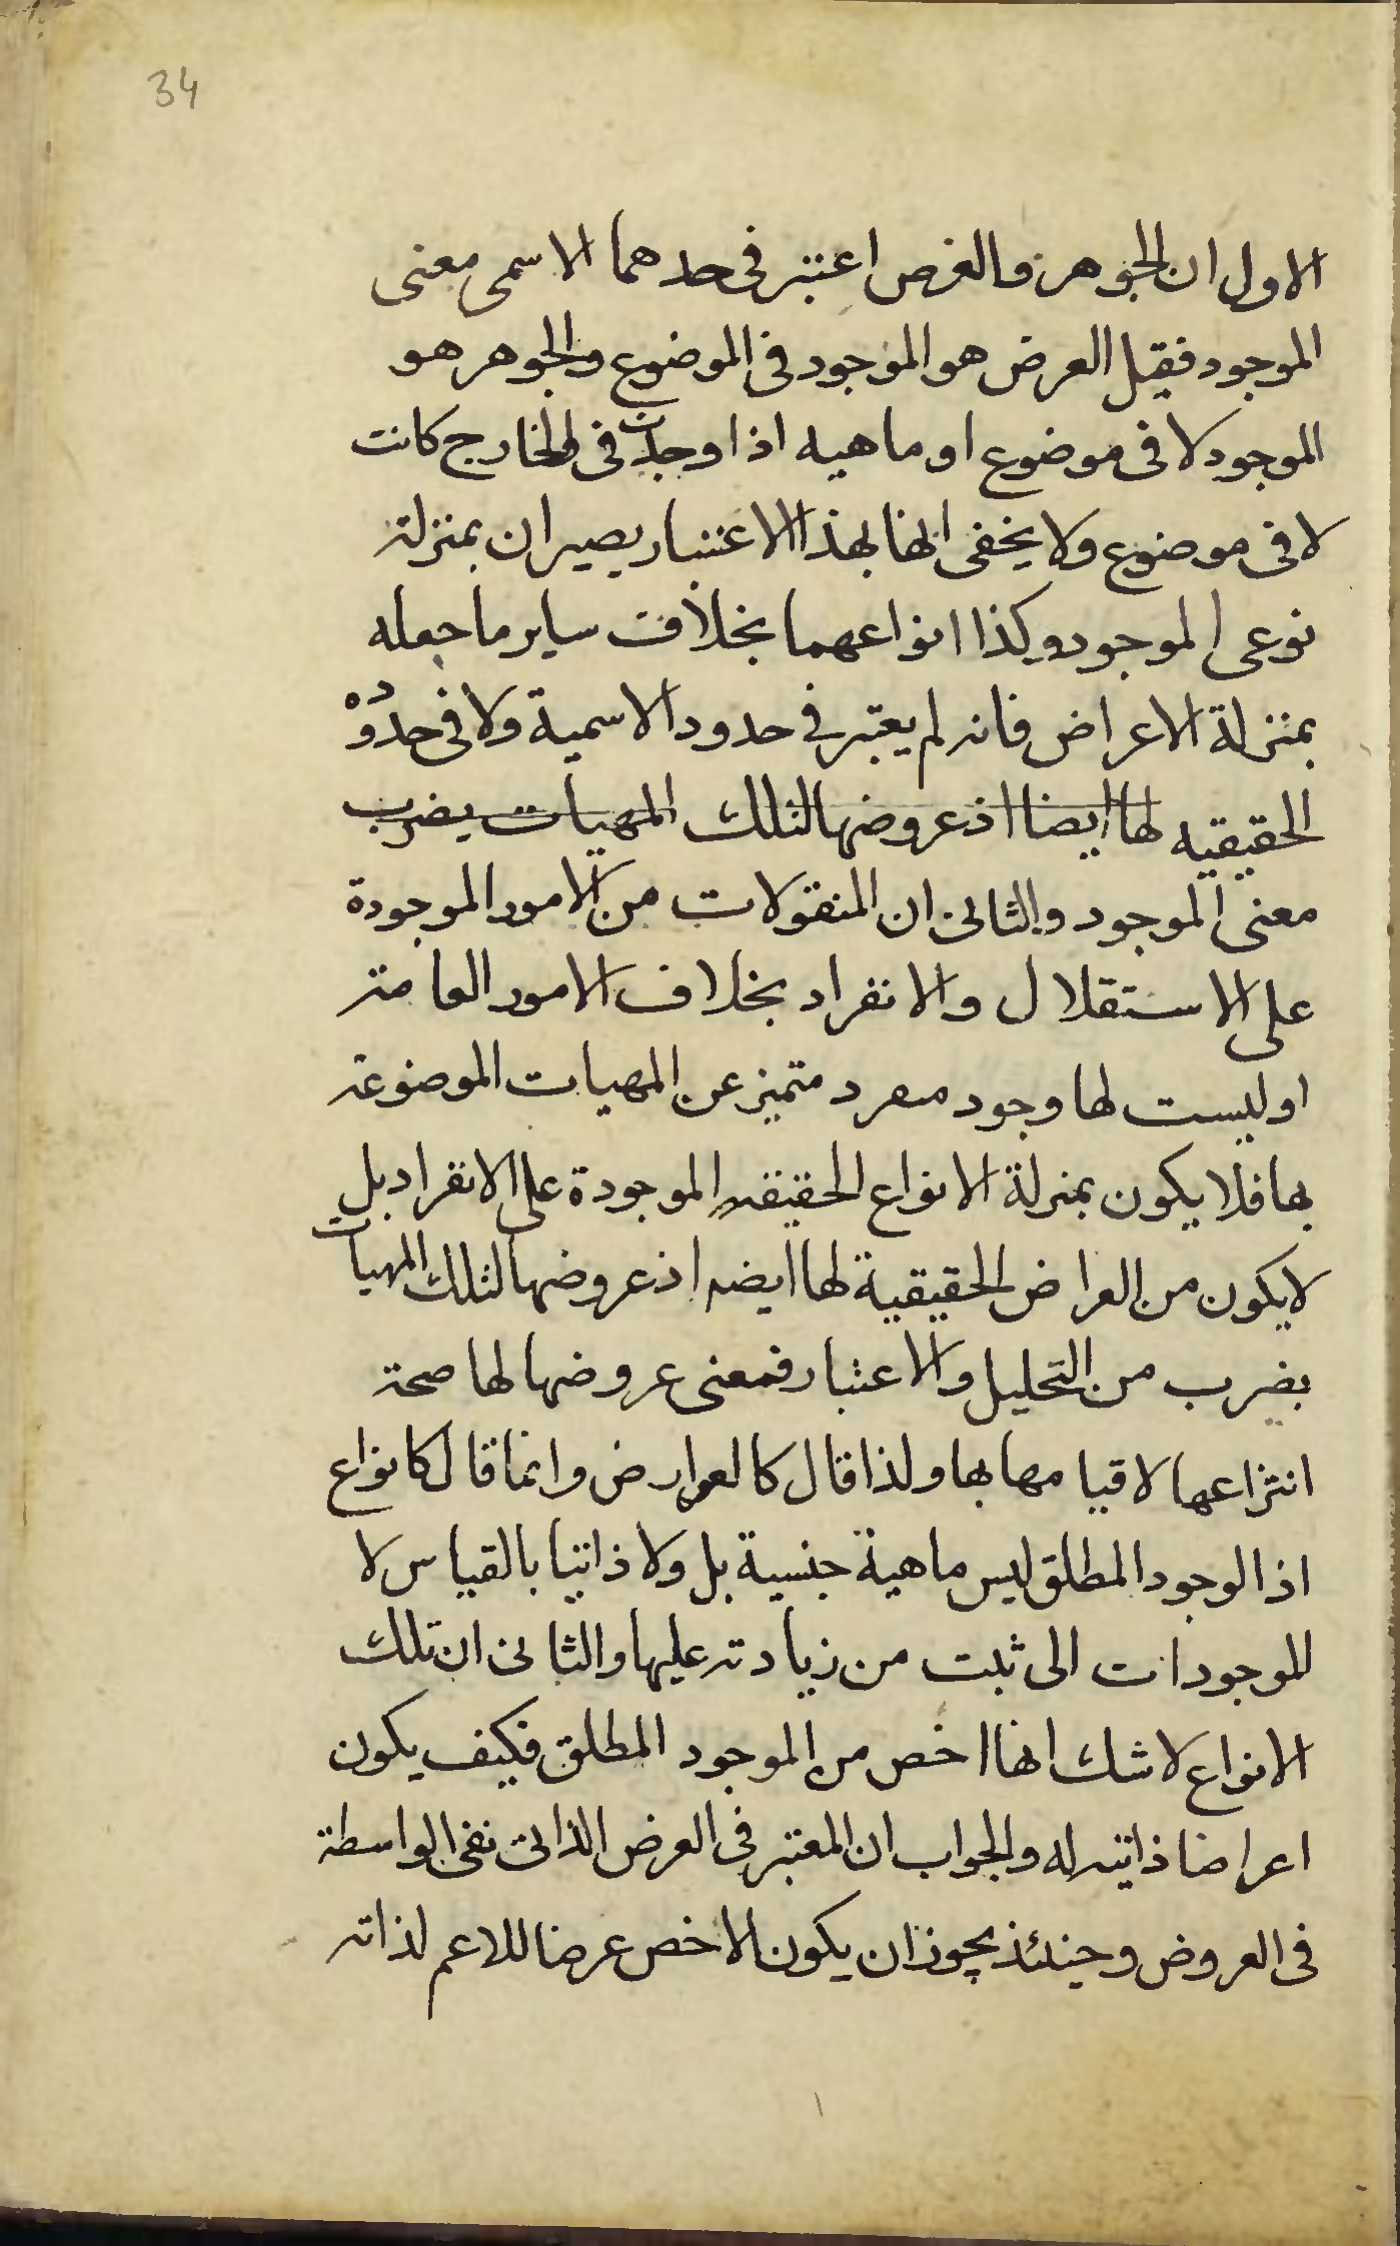 34
الاول ان الجوهر والعرض اعتبر فى حدهما الاسمى معنى
الموجود فقيل العرض هو الموجود فى الموضوع والجوهر هو
الموجود لا فى موضوع او ماهيه اذا وجدت فى الخارج كانت
لا فى موضوع ولا يخفى انها بهذا الاعتبار يصيران بمنزلة
نوعى الموجود وكذا انواعهما بخلاف ساير ما جعله
بمنزلة الاعراض فانه لم يعتبر فى حدود الاسمية ولا فى حدوده
الحقيقيه لها ايضا اذ عروضها لتلك المهيات يضرب
معنى الموجود والثانى ان المنقولات من الامور الموجودة
على الاستقلال والانفراد بخلاف الامور العامة
او ليست لها وجود منفرد متميز عن المهيات الموضوعة
بها فلا يكون بمنزلة الانواع الحقيقيه الموجودة على الانفراد بل
لا يكون من العراض الحقيقية لها ايضه اذ عروضها لتلك المهيات
بضرب من التحليل والاعتبار فمعنى عروضها لها صحة
انتزاعها لا قيامها بها ولذا قال كالعوارض وانما قال كانواع
اذ الوجود المطلق ليس ماهية جنسية بل ولا ذاتيا بالقياس لا
للموجودات الى ثبت من زيادته عليها والثانى ان تلك
الانواع لا شك انها اخص من الموجود المطلق فكيف يكون
اعراضا ذاتيه له والجواب ان المعتبر فى العرض الذاتى نفى الواسطة
فى العروض وحينئذ يجوز ان يكون الاخص عرضا للاعم لذاته